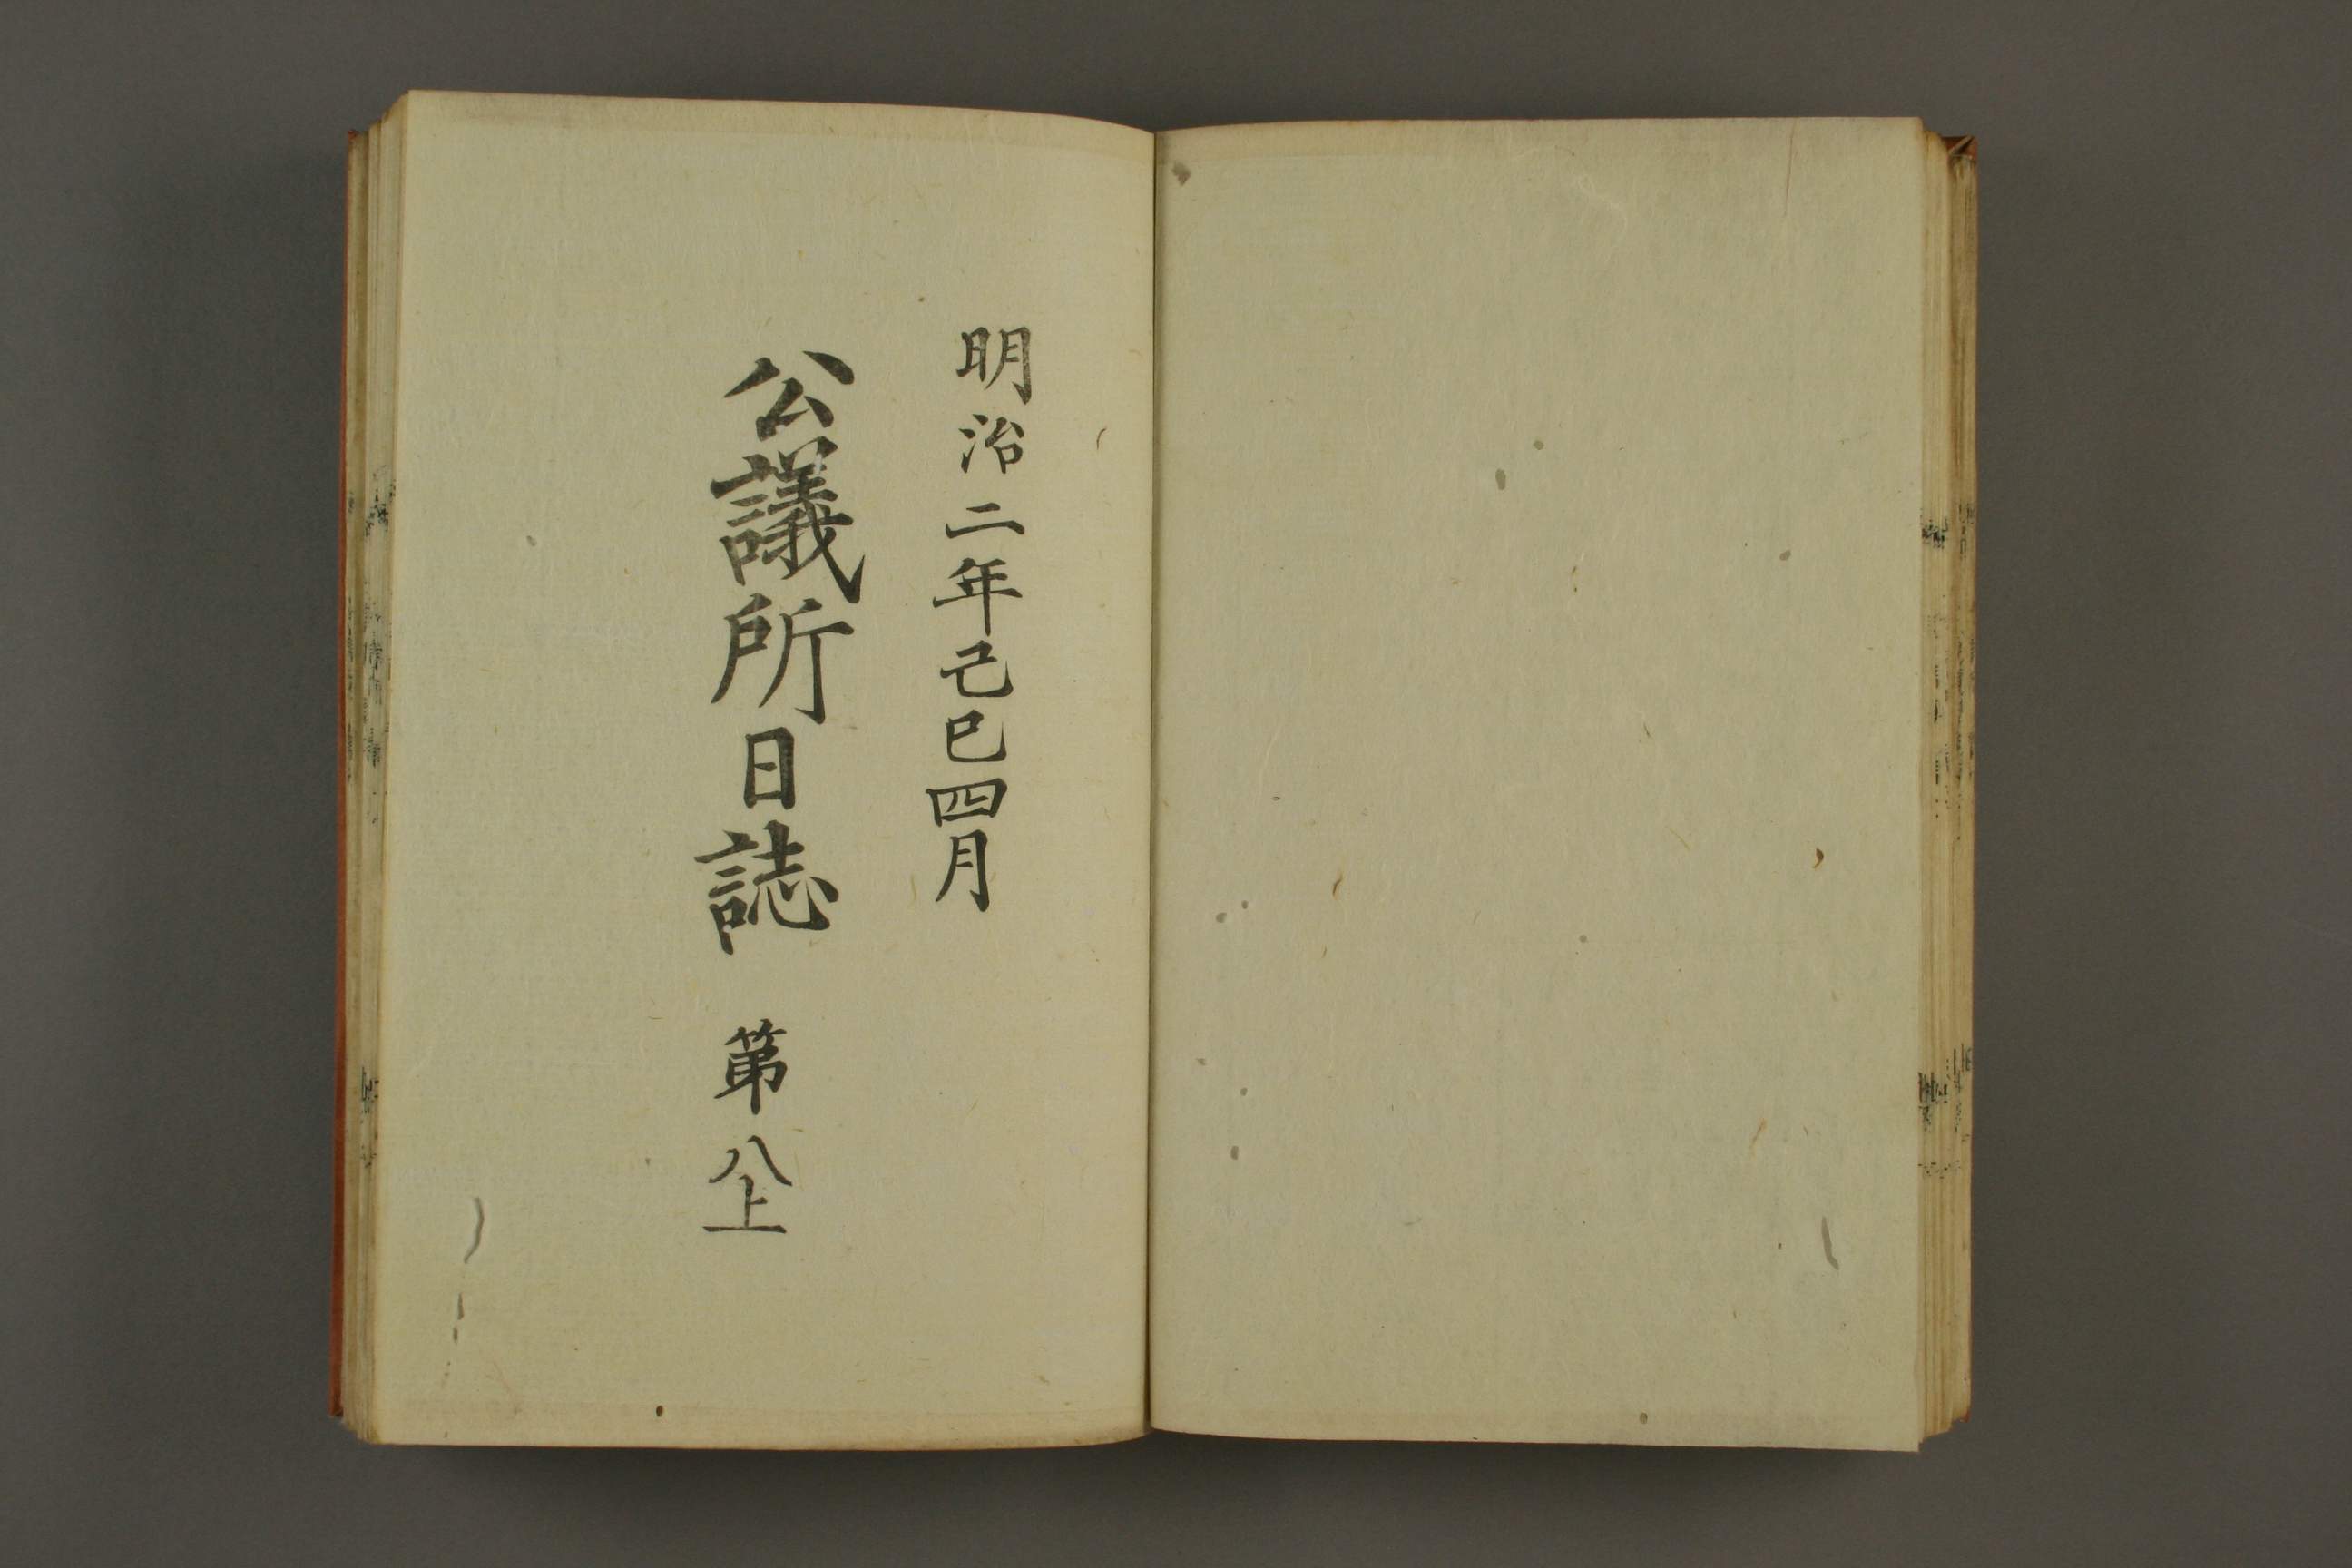 明治二年己巳四月
公議所日誌 第八上